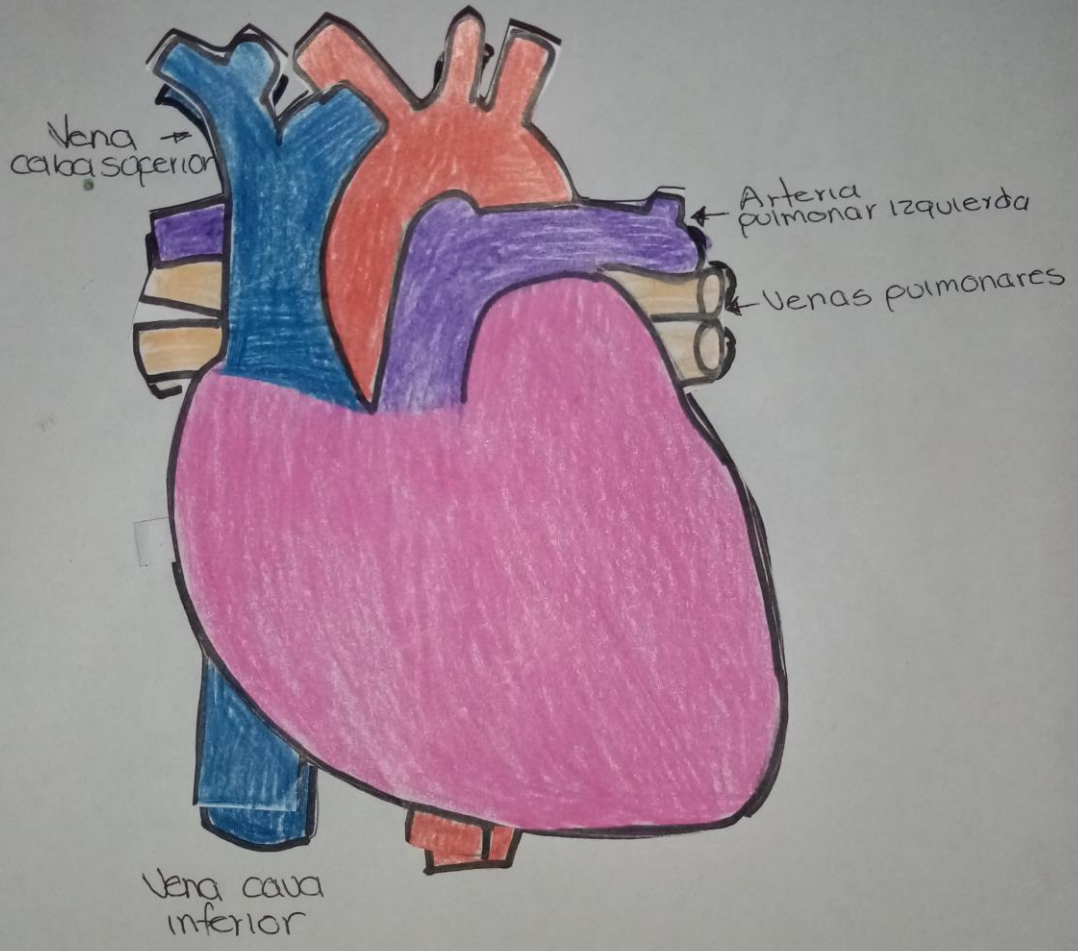 Vena
caba soperior
Arteria
pulmonar izquierda
Venas pulmonares
Vena cava
inferior